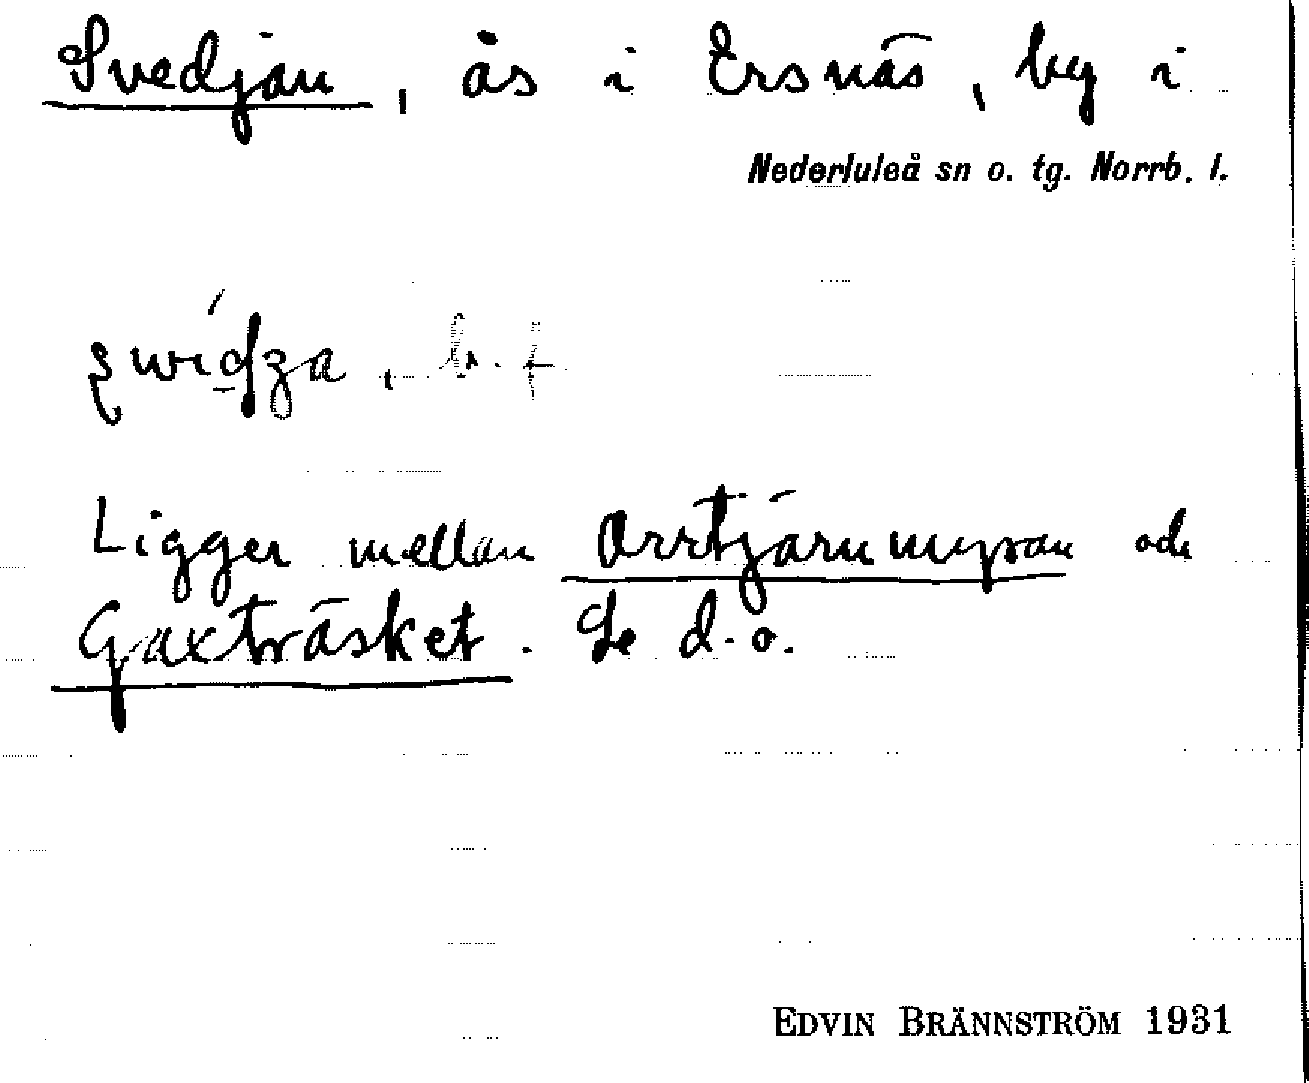 Svedjan, ås i Ersnäs, by i
Nederluleå sn o. tg. Norrb. l.
b. f
Ligger mellan Orrtjärnmyran och
Gaxträsket. Se d. o.
EDVIN BRÄNNSTRÖM 1931